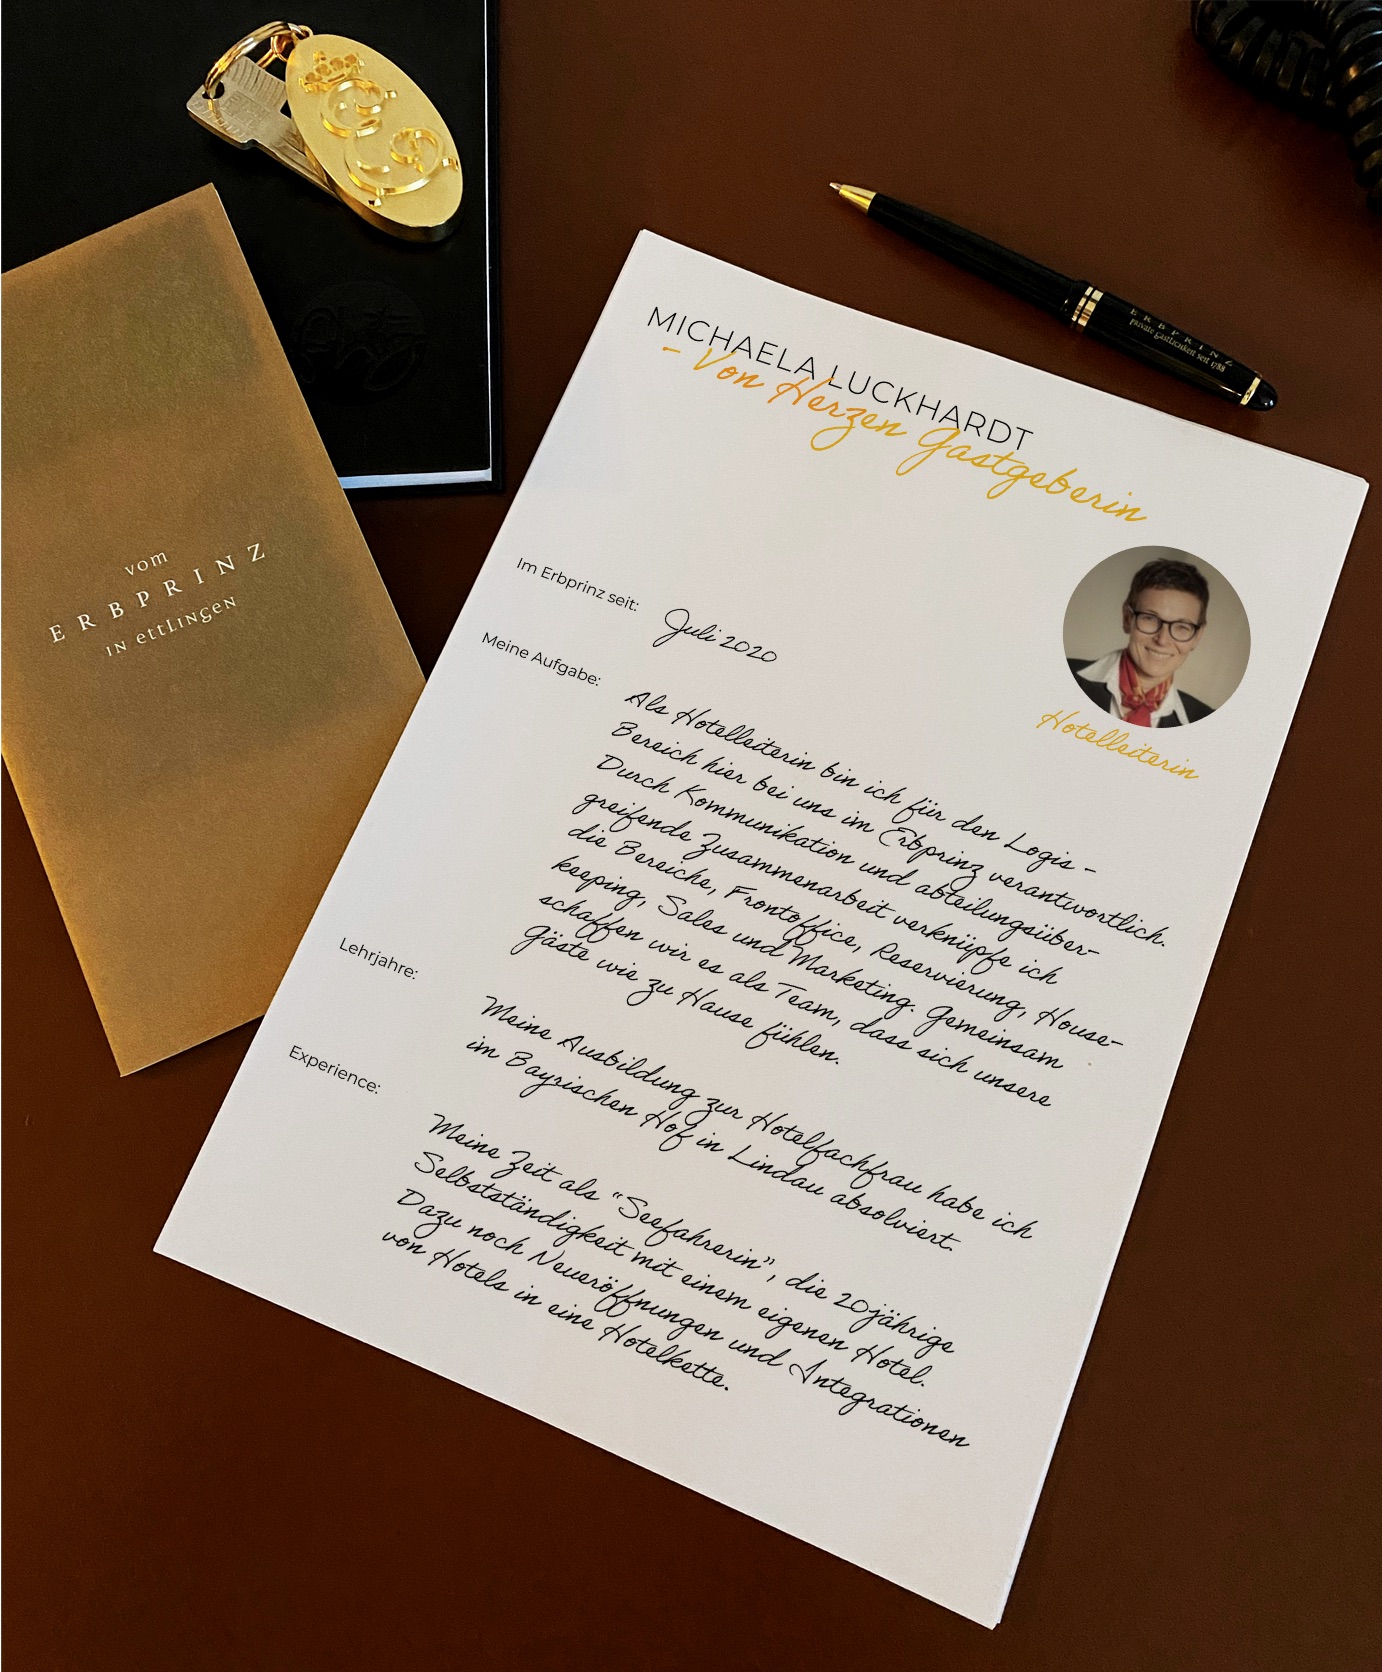 vom
ERBPRINZ
IN ettLINGeN
ERBPRINZ
private Gastlichkeit seit 1788
MICHAELA LUCKHARDT
- Von Herzen Gastgeberin
Hotelleiterin
Im Erbprinz seit:
Juli 2020
Meine Aufgabe:
Als Hotelleiterin bin ich für den Logis -
Bereich hier bei uns im Erbprinz verantwortlich.
Durch Kommunikation und abteilungsüber-
greifende Zusammenarbeit verknüpfe ich
die Bereiche, Frontoffice, Reservierung, House-
keeping, Sales und Marketing. Gemeinsam
schaffen wir es als Team, dass sich unsere
Gäste wie zu Hause fühlen.
Lehrjahre:
Meine Ausbildung zur Hotelfachfrau habe ich
im Bayrischen Hof in Lindau absolviert.
Experience:
Meine Zeit als "Seefahrerin", die 20jährige
Selbstständigkeit mit einem eigenen Hotel.
Dazu noch Neueröffnungen und Integrationen
von Hotels in eine Hotelkette.